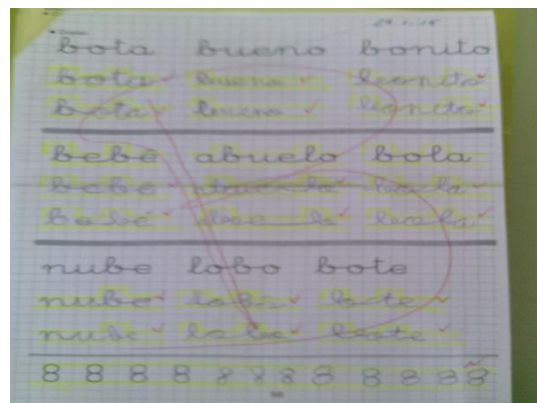 bota bueno bonito
bota bueno bonito
bota bueno bonito
bebé abuelo bola
bebe
bebé
nube lobo bote
nube lobo bote
nube lobo bote
8 8 8 8 8 8 8 8 8 8 8 8